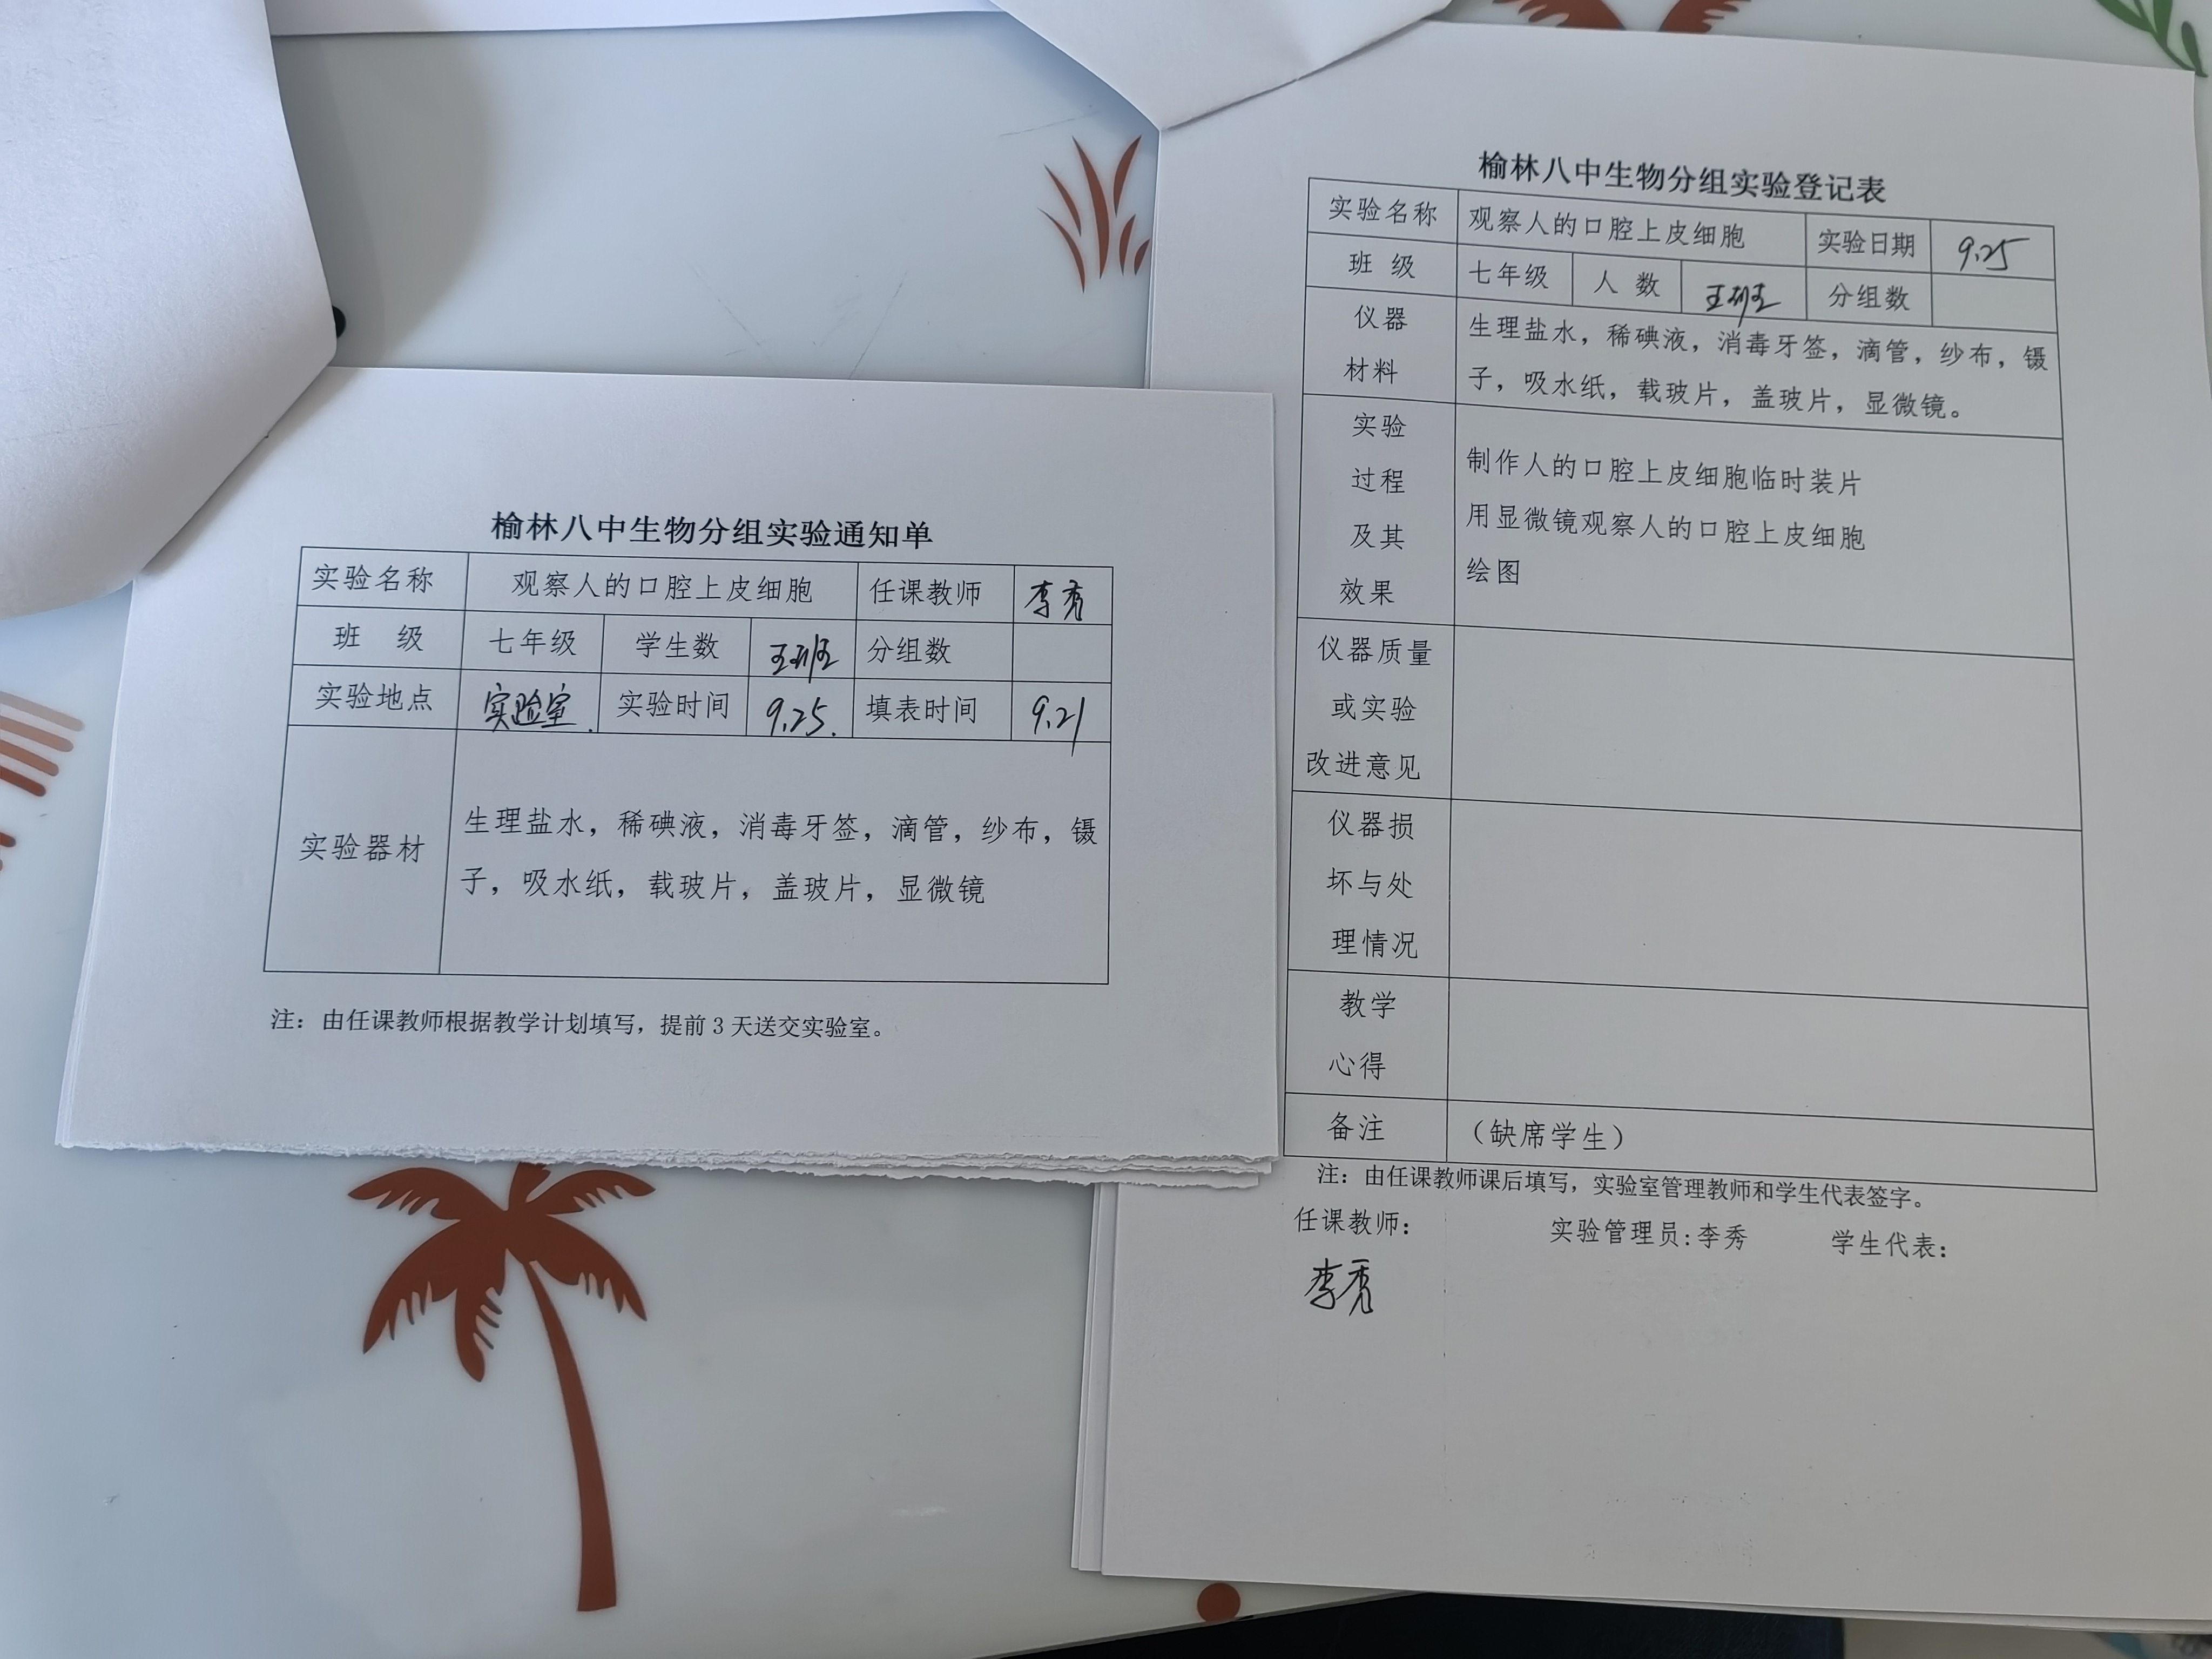 榆林八中生物分组实验通知单
实验名称 观察人的口腔上皮细胞 任课教师 李秀
班 级 七年级 学生数 分组数
实验地点 实验室 实验时间 9.25. 填表时间 9.21
实验器材
生理盐水，稀碘液，消毒牙签，滴管，纱布，镊
子，吸水纸，载玻片，盖玻片，显微镜
注：由任课教师根据教学计划填写，提前 3 天送交实验室。
榆林八中生物分组实验登记表
实验名称 观察人的口腔上皮细胞 实验日期 9.25
班 级 七年级 人 数 分组数
仪器
材料
生理盐水，稀碘液，消毒牙签，滴管，纱布，镊
子，吸水纸，载玻片，盖玻片，显微镜。
实验
过程
及其
效果
制作人的口腔上皮细胞临时装片
用显微镜观察人的口腔上皮细胞
绘图
仪器质量
或实验
改进意见
仪器损
坏与处
理情况
教学
心得
备注 （缺席学生）
注：由任课教师课后填写，实验室管理教师和学生代表签字。
任课教师： 实验管理员:李秀 学生代表：
李秀